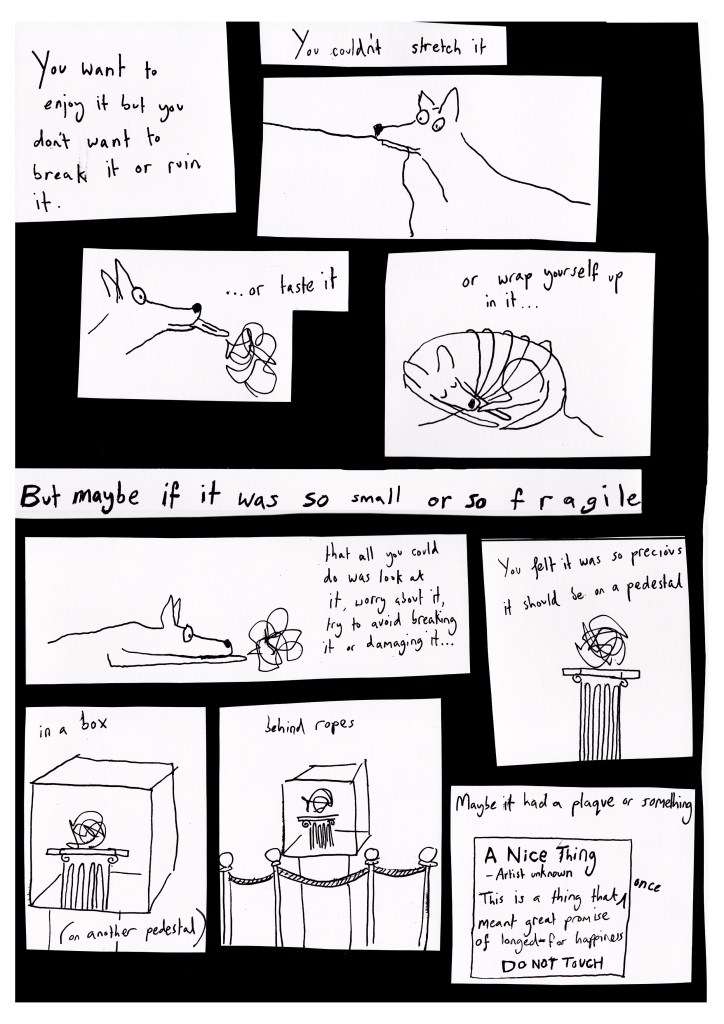 You want to
enjoy it but you
don't want to
break it or ruin
it.
You couldn't stretch it
...or taste it
or wrap yourself up
in it...
But maybe if it was so small or so fragile
that all you could
do was look at
it, worry about it,
try to avoid breaking
it or damaging it...
You felt it was so precious
it should be on a pedestal
in a box
(on another pedestal)
behind ropes
Maybe it had a plaque or something
A Nice Thing
- Artist unknown
This is a thing that once
meant great promise
of longed-for happiness
DO NOT TOUCH